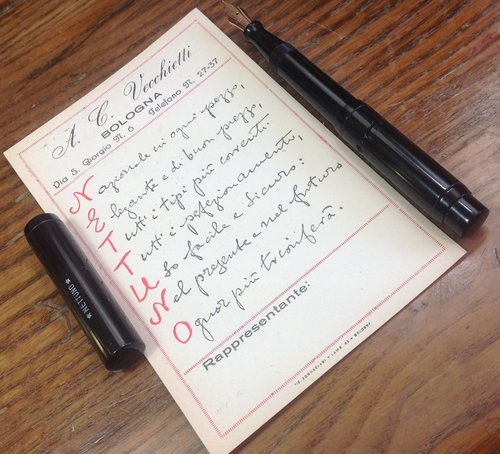 A. C. Vecchietti
BOLOGNA
Via S. Giorgio N. 6 Telefono N. 27-37
Nazionale in ogni pezzo,
Elegante e di buon prezzo,
Tutti i tipi più correnti.
Tutti i perfezionamenti,
Uso facile e sicuro:
Nel presente e nel futuro
Ognor più trionferà.
Rappresentante:
★ NETTUNO ★